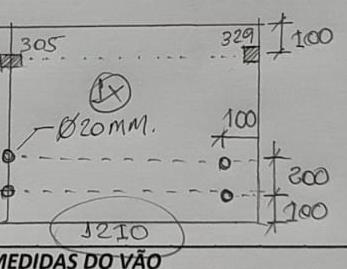 305
329
100
1X
Ø20MM.
100
200
100
1210
MEDIDAS DO VÃO